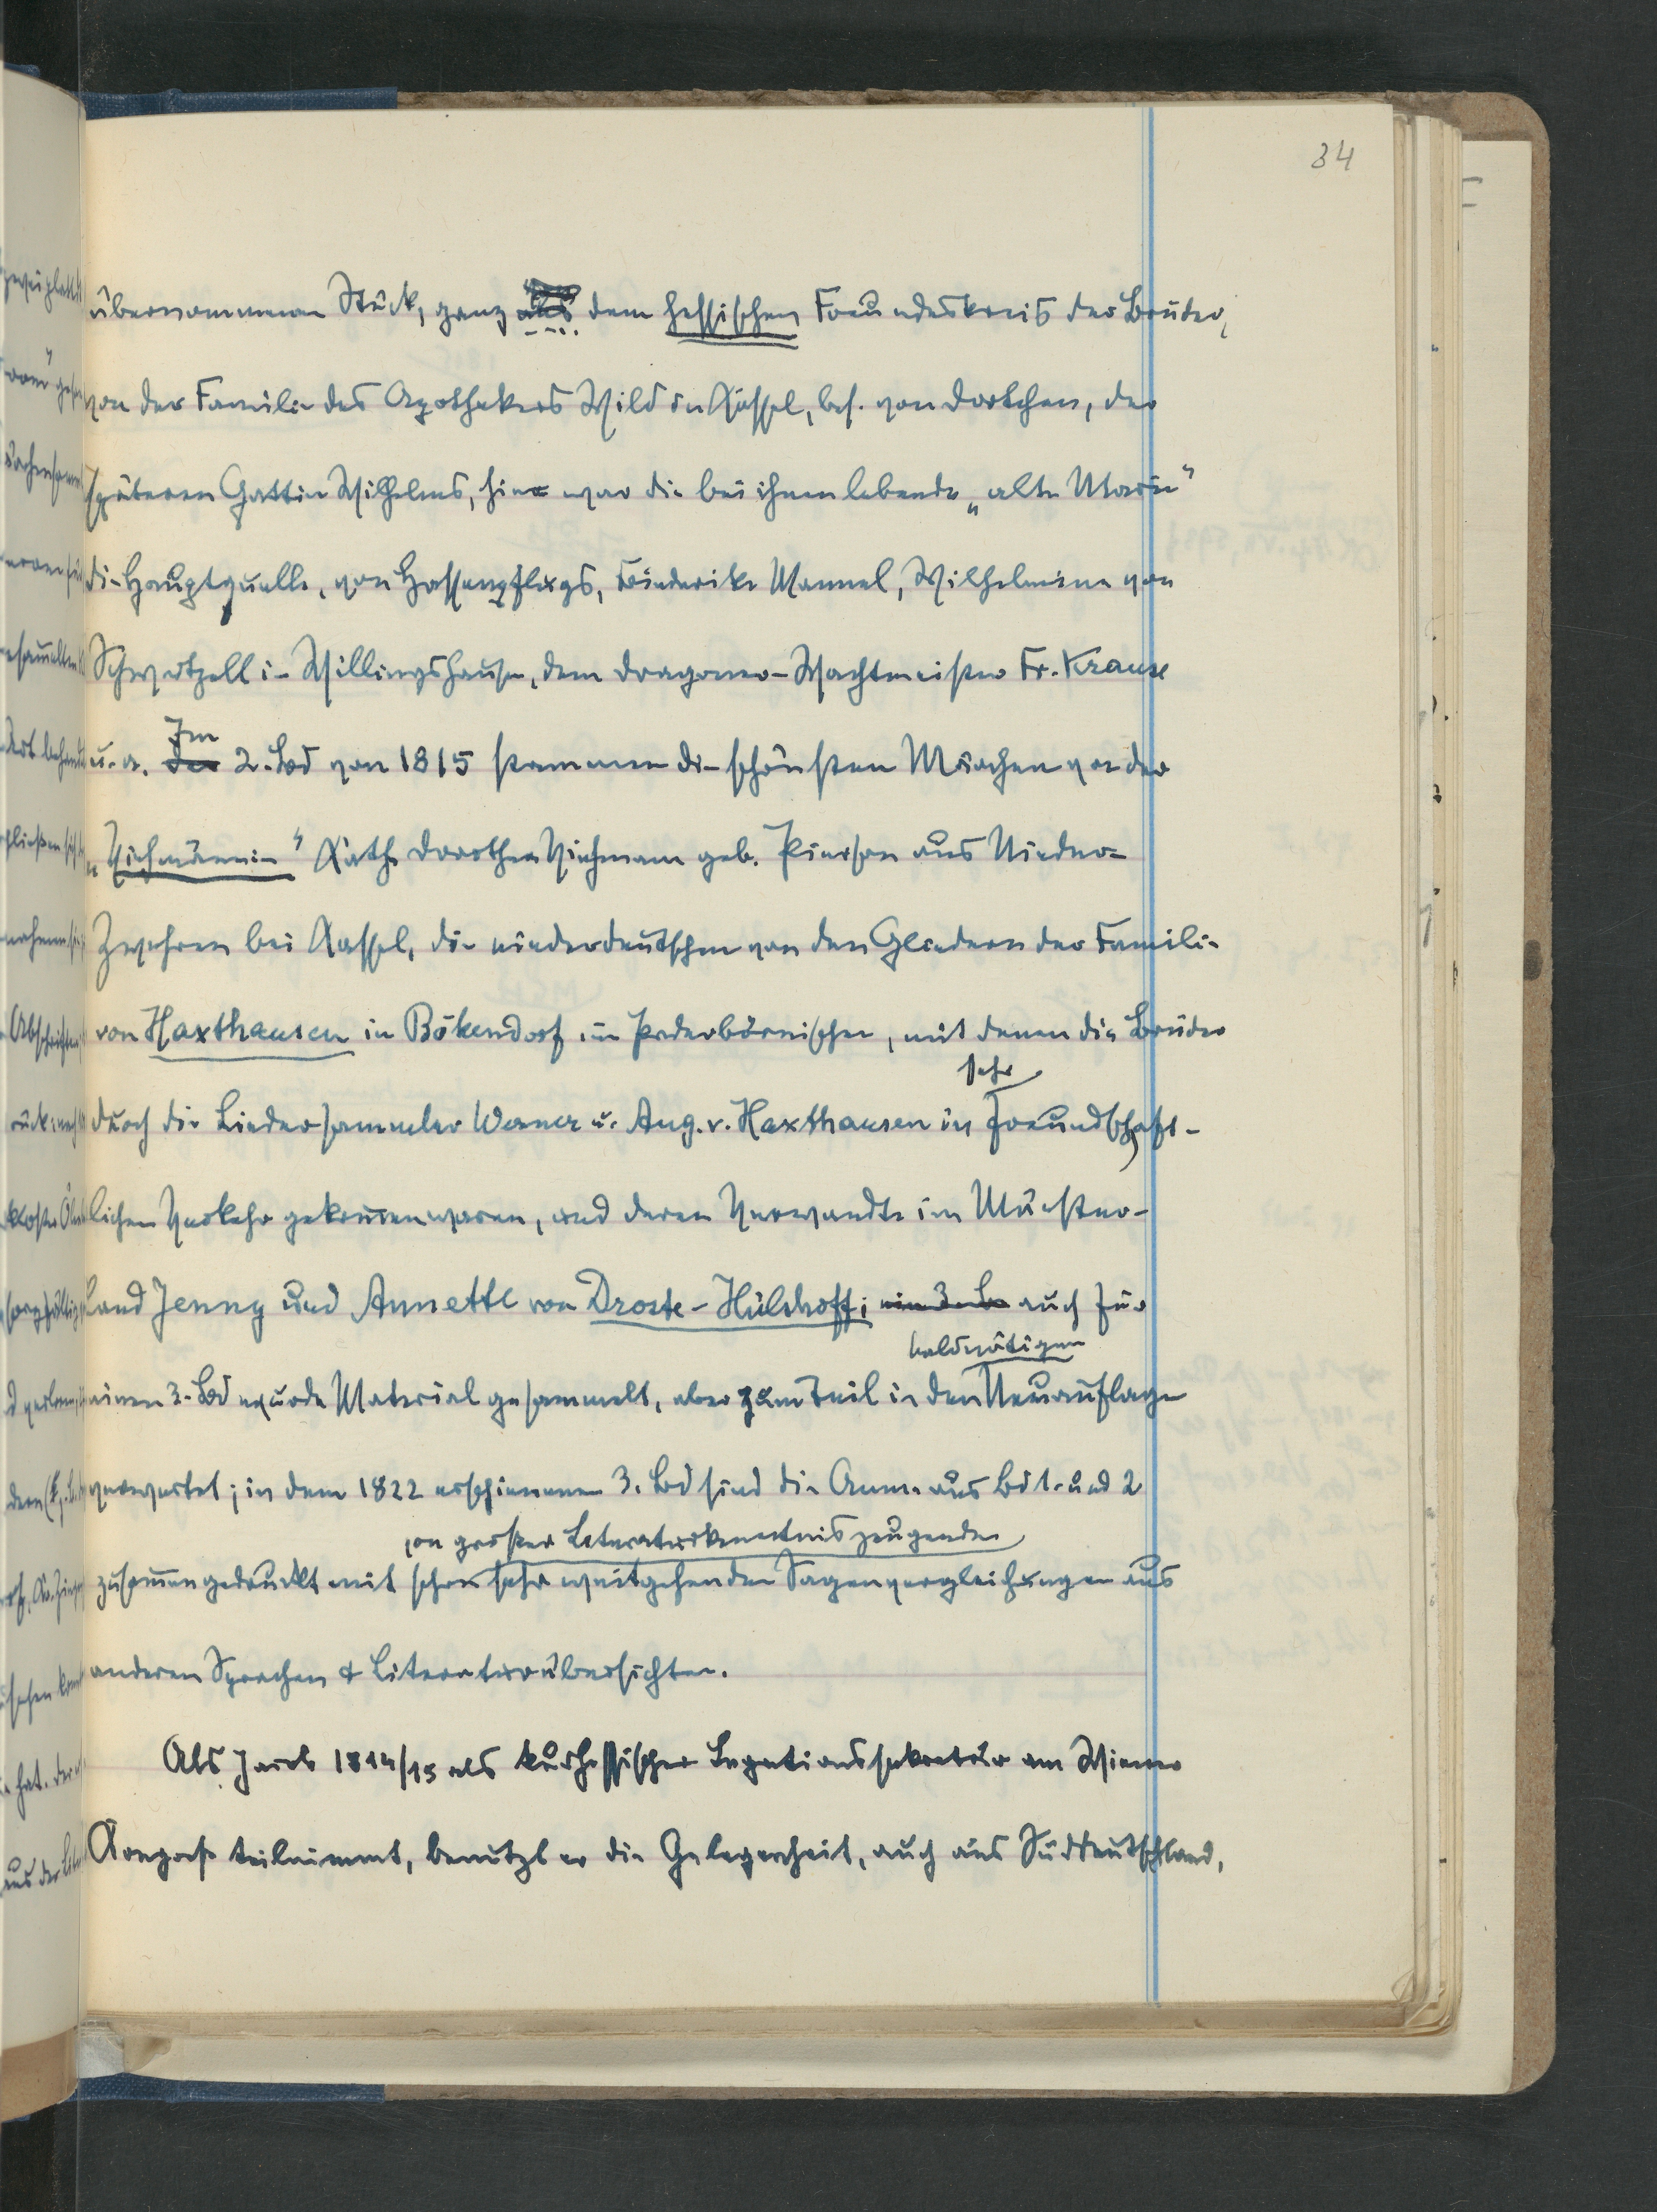 34
übernommenen Stück, ganz aus dem hessischen Freundeskreis der Brüder,
von der Familie des Apothekers Wild in Kassel, bes. von Dortchen, der
späteren Gattin Wilhelms, hier war die bei ihnen lebende „alte Marie“
die Hauptquelle, von Hassenpflugs, Friederike Mannel, Wilhelmine von
Schwertzell in Willingshausen, dem Dragoner-Wachtmeister Fr. Krause
u. a. Im 2. Bd von 1815 stammen die schönsten Märchen von der
„Viehmännin“ Kath. Dorothea Viehmann geb. Pierson aus Nieder-
Zwehren bei Kassel, die niederdeutschen von den Gliedern der Familie
von Haxthausen in Bökendorf im Paderbörnischen, mit denen die Brüder
sehr
durch die Liedersammler Werner u. Aug. v. Haxthausen in freundschaft-
lichen Verkehr gekommen waren, und deren Verwandte im Münster-
land Jenny und Annette von Droste-Hülshoff; auch für
baldnötigen
einen 3. Bd wurde Material gesammelt, aber zum Teil in den Neuauflagen
verwertet; in dem 1822 erschienenen 3. Bd sind die Anm. aus Bd 1. und 2
von grosser Literaturkenntnis zeugenden
zusammengedruckt mit schon sehr weitgehenden Sagenvergleichungen aus
anderen Sprachen & Literaturübersichten.
Als Jacob 1814/15 als kurhessischer Legationssekretär am Wiener
Kongress teilnimmt, benutzt er die Gelegenheit, auch aus Süddeutschland,